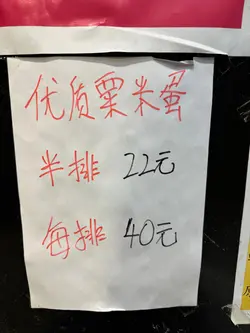 优质粟米蛋
半排 22元
每排 40元